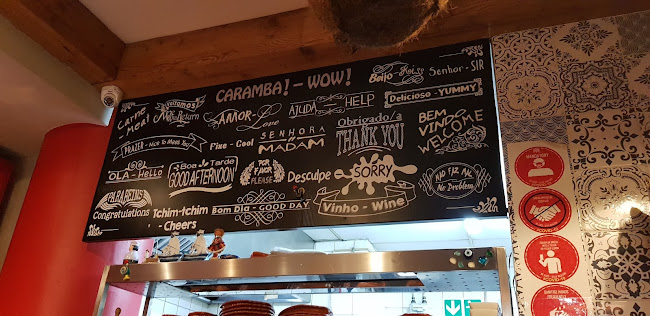 CARAMBA! - WOW!
Beijo - Kiss
Senhor - SIR
Carne
Meat
Voltamos
Return
AMOR -
Love
AJUDA
HELP
Delicioso - YUMMY
PRAZER - Nice To Meet You
Fixe - Cool
SENHORA
MADAM
Obrigado/a
THANK YOU
BEM
VINDO
WELCOME
OLA - Hello
Boa Tarde
GOOD AFTERNOON
POR
FAVOR
PLEASE
Desculpe
SORRY
NÃO FAZ MAL
No Problem
PARABEINS
Congratulations
Tchim-tchim
- Cheers
Bom Dia - GOOD DAY
Vinho - Wine